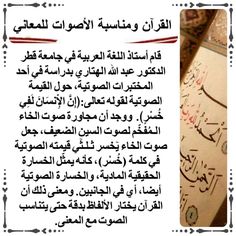 القرآن ومناسبة الأصوات للمعاني
قام أستاذ اللغة العربية في جامعة قطر
الدكتور عبد الله الهتاري بدراسة في أحد
المختبرات الصوتية، حول القيمة
الصوتية لقوله تعالى:(إنَّ الإنسَانَ لَفِي
خُسْرٍ). ووجد أن مجاورة صوت الخاء
المُفخَّم لصوت السين الضعيف، جعل
صوت الخاء يَخسر ثـلـثَيْ قيمته الصوتية
في كلمة (خُسْر)، كأنه يمثّل الخسارة
الحقيقية المادية، والخسارة الصوتية
أيضا، أي في الجانبين. ومعنى ذلك أن
القرآن يختار الألفاظ بدقة حتى يتناسب
الصوت مع المعنى.